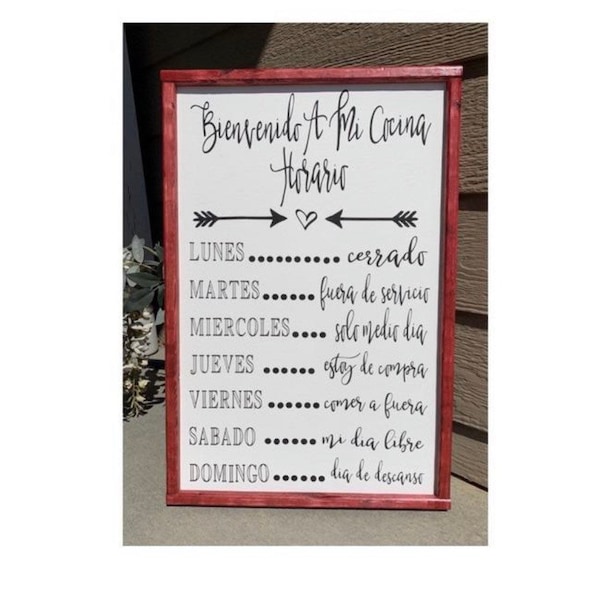 Bienvenido A Mi Cocina
Horario
LUNES.......... cerrado
MARTES...... fuera de servicio
MIERCOLES.... solo medio dia
JUEVES ...... estoy de compra
VIERNES ...... comer a fuera
SABADO ...... mi dia libre
DOMINGO...... dia de descanso